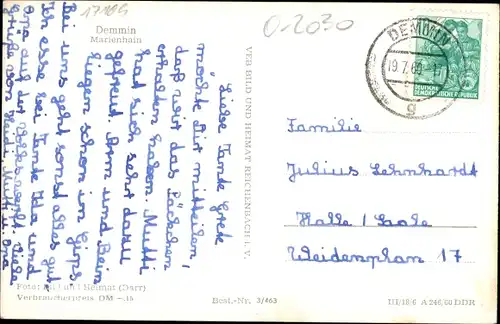 17109
O-2030
Demmin
Marienhain
DEMMIN
19.7.60
g
DEUTSCHE
DEMOKRATISCHE REPUBLIK
Liebe Tante Grete
möchte Dir mitteilen,
daß wir das Päckchen
erhalten haben. Mutti
hat sich sehr dazu
gefreut. Arm und Bein
liegen schon im Gips
Bei uns geht sonst alles gut
Ich esse bei Tante Ida und
Opa auf der Volkswerft. Viele
Grüße von Heidi, Mutti u. Opa
VEB BILD UND HEIMAT REICHENBACH i. V.
Familie
Julius Lehnhardt
Halle / Saale
Weidenplan 17
Foto: Bild und Heimat (Darr)
Verbraucherpreis DM -,15
Best.-Nr. 3/463
III/18/6 A 246/60 DDR